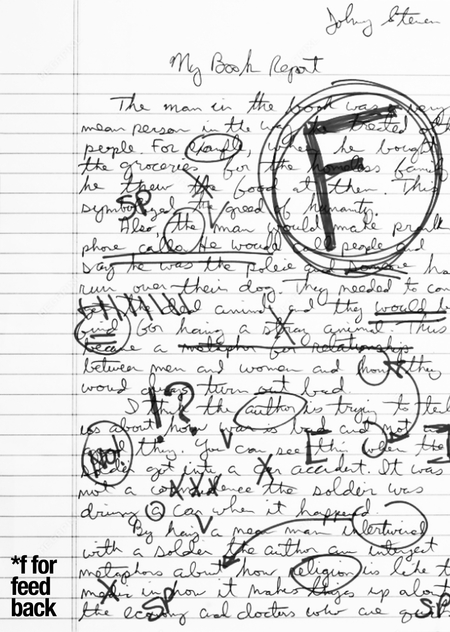 Johny Steven
My Book Report
F
The man in the book was a very
mean person in the way treated
people. For when he bought
the groceries for the homeless family
he threw the food at them. This
SP
symbolized the greed of humanity.
Also the man would make prank
phone calls. He would call people and
say he was the police and had
run over their dog. They needed to
animal and they would be
for having a stray animal. Thus
became a metaphor for relationship
between men and women and how they
turn out bad.
!?
I think the author is trying to tell
us about how war is bad and not
a thing. You can see this when the
NO!
solder get into a accident. It was
XXX
not a the solder was
driving a car when it happened.
By having a mean man intertwined
with a solder the author can
metaphors about how religion is like
how it makes things up about
the economy and doctors who are
SP
SP
*f for
feed
back